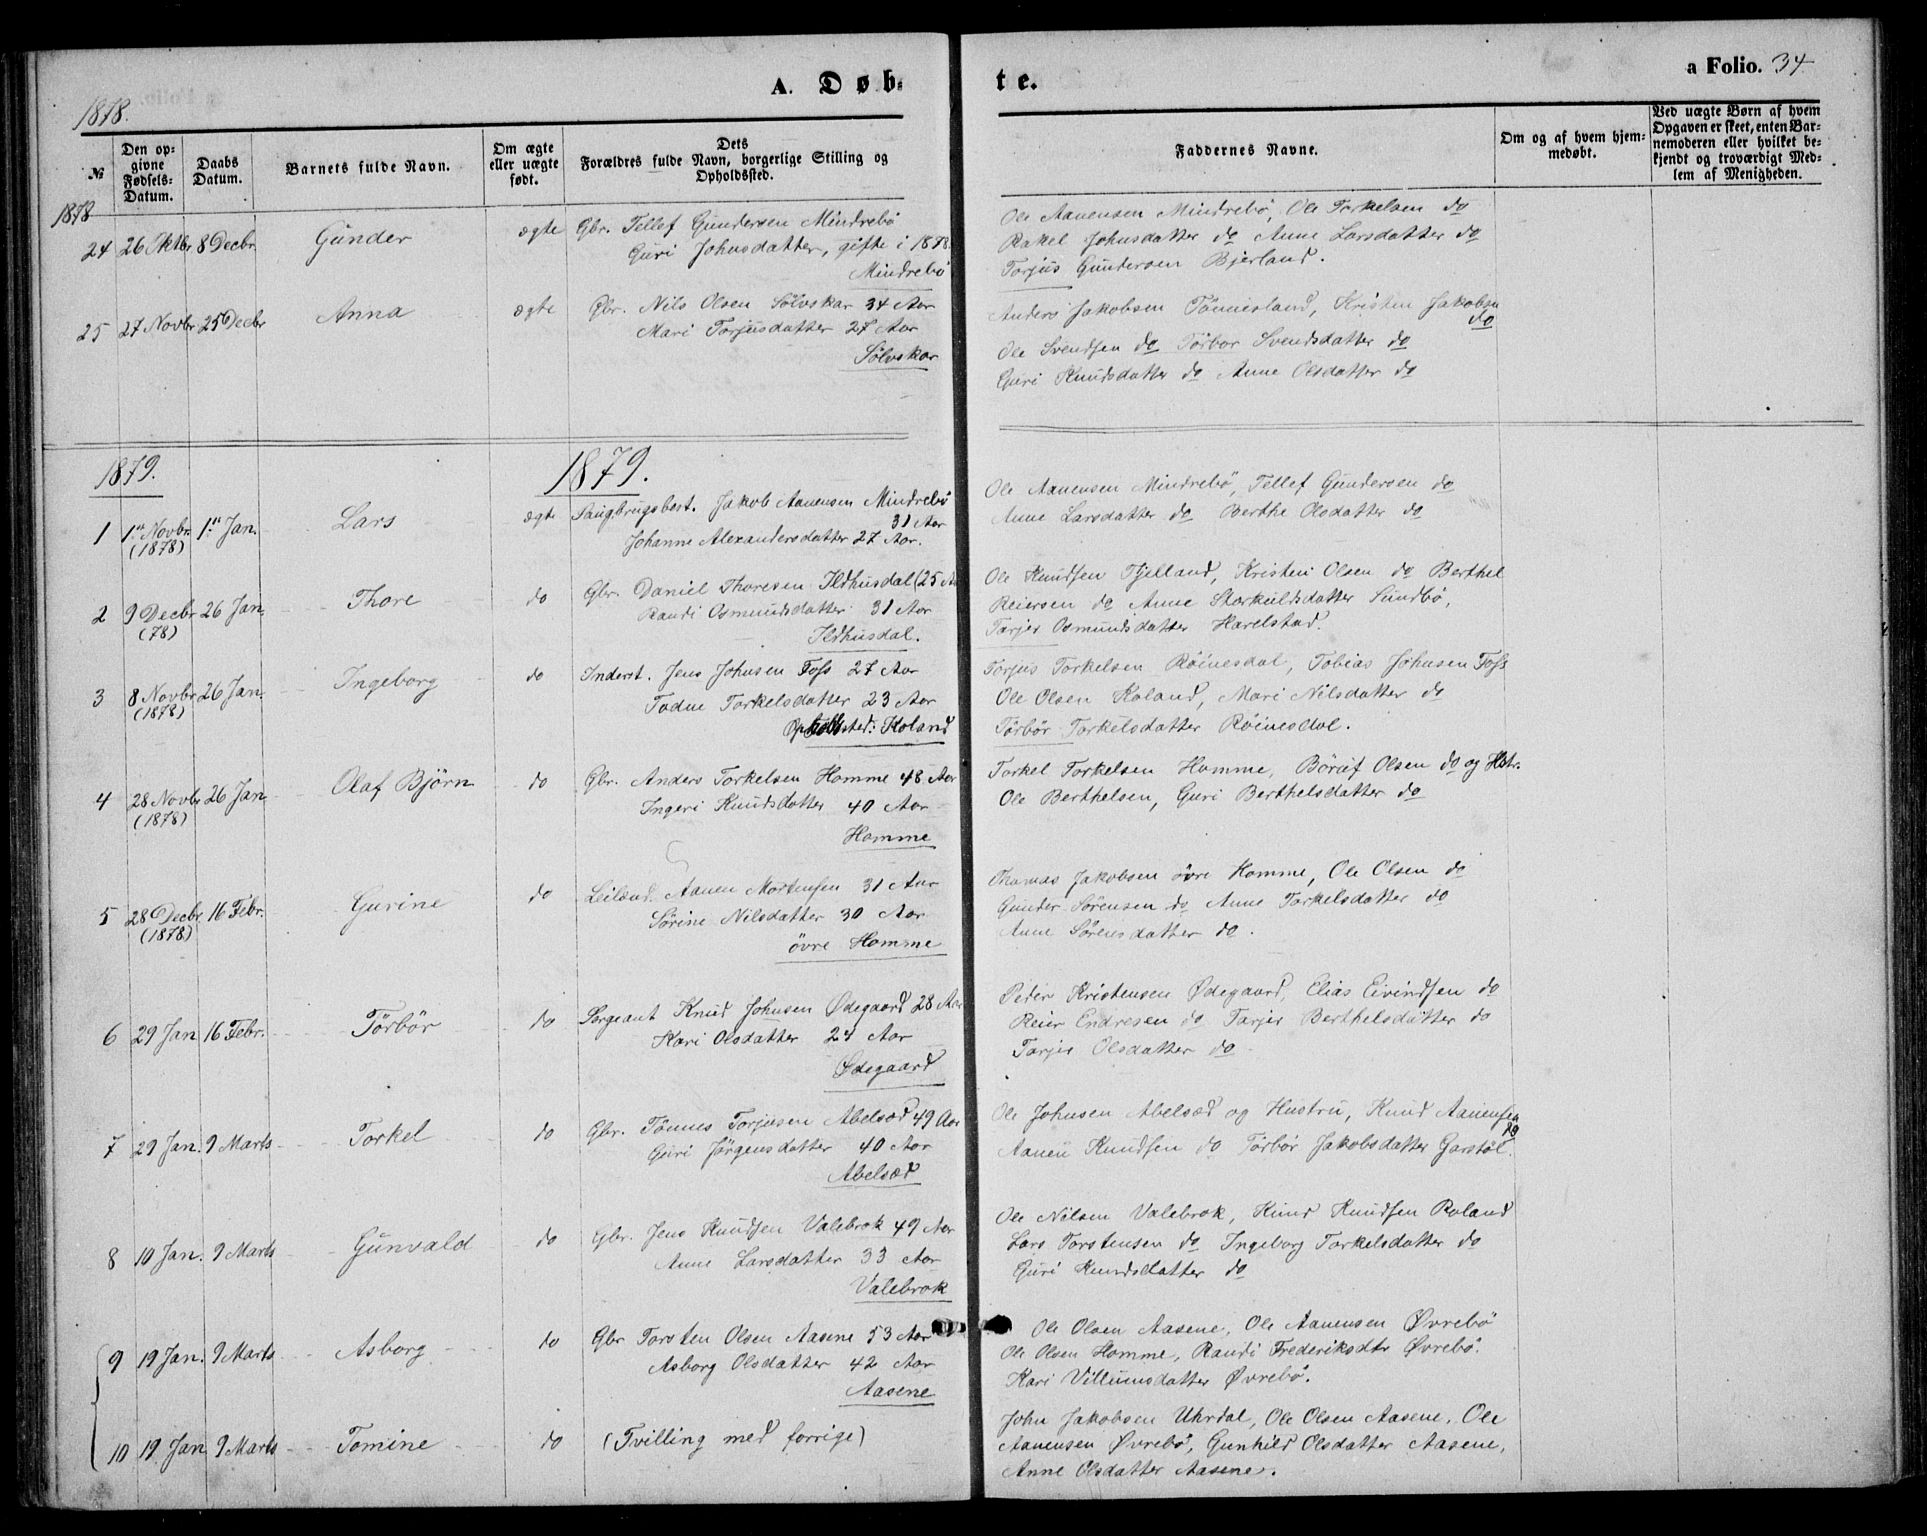 A. Døb-
te.
a Folio. 34
1878.
№
Den opgivne Fødsels-Datum.
Daabs Datum.
Barnets fulde Navn.
Om ægte eller uægte født.
Dets Forældres fulde Navn, borgerlige Stilling og Opholdssted.
Faddernes Navne.
Om og af hvem hjemmedøbt.
Ved uægte Børn af hvem Opgaven er skeet, enten Barnemoderen eller hvilket bekjendt og troværdigt Medlem af Menigheden.
1878
24 26 Oktbr 8 Decbr Gunder ægte Gbr. Tellef Gundersen Mindrebö
Guri Johnsdatter, gifte i 1878.
Mindrebö
Ole Aanensen Mindrebö, Ole Torkelsen do
Rakel Johnsdatter do Anne Larsdatter do
Torjus Gundersen Bjerland.
25 27 Novbr 25 Decbr Anna ægte Gbr. Nils Olsen Sölvskar 34 Aar
Mari Torjusdatter 27 Aar
Sölvskar
Anders Jakobsen Tönnesland, Kristen Jakobsen
do
Ole Svendsen do Törbor Svendsdatter do
Guri Knudsdatter do Anne Olsdatter do
1879.
1879.
1 1ste Novbr. 1ste Jan. Lars ægte Saugbrugsbest. Jakob Aanensen Mindrebö
(1878) 31 Aar
Johanne Alexandersdatter 27 Aar.
Ole Aanensen Mindrebö, Tellef Gundersen do
Anne Larsdatter do Berthe Olsdatter do
2 9 Decbr 26 Jan. Thore do Gbr. Daniel Thoresen Ildhusdal (25 Aar
(78) Randi Osmundsdatter 31 Aar
Ildhusdal.
Ole Knudsen Fjelland, Kristen Olsen do Berthel
Reiersen do Anne Storkuldsdatter Sundbö,
Tarjer Osmundsdatter Harelstad.
3 8 Novbr 26 Jan. Ingeborg do Inderst. Jens Johnsen Foss 27 Aar
(1878) Todne Torkelsdatter 23 Aar
Opholdssted: Koland
Torjus Torkelsen Röinesdal, Tobias Johnsen Foss
Ole Olsen Koland, Mari Nilsdatter do
Törbör Torkelsdatter Röinesdal.
4 28 Novbr 26 Jan Olaf Björn do Gbr. Anders Torkelsen Homme 48 Aar
(1878) Ingeri Knudsdatter 40 Aar
Homme
Torkel Torkelsen Homme, Olsen do og Hstr.
Ole Berthelsen, Guri Berthelsdatter do
5 28 Decbr 16 Febr. Gurine do Leilænd. Aanen Mortensen 31 Aar
(1878) Sörine Nilsdatter 30 Aar
övre Homme
Thomas Jakobsen övre Homme, Ole Olsen do
Gunder Sörensen do Anne Torkelsdatter do
Anne Sörensdatter do.
6 29 Jan 16 Febr. Törbör do Sergeant Knud Johnsen Ødegaard 28 Aar
Kari Olsdatter 24 Aar
Ødegaard
Peder Kristensen Ødegaard, Elias Eivindsen do
Reier Endresen do Tarjer Berthelsdatter do
Tarjer Olsdatter do
7 29 Jan. 9 Marts Torkel do Gbr. Tönnes Torjusen Abelsæd 49 Aar
Guri Jörgensdatter 40 Aar
Abelsæd
Ole Johnsen Abelsæd og Hustru, Knud Aanensen
do
Aanen Knudsen do Törbör Jakobsdatter Garstöl.
8 10 Jan. 9 Marts Gunvald do Gbr. Jens Knudsen Valebrok 49 Aar
Anne Larsdatter 33 Aar
Valebrok
Ole Nilsen Valebrok, Knud Knudsen Roland
Lars Torstensen do Ingeborg Torkelsdatter do
Guri Knudsdatter do
9 19 Jan. 9 Marts Asborg do Gbr Torsten Olsen Aasene 53 Aar
Asborg Olsdatter 42 Aar
Aasene
Ole Olsen Aasene, Ole Aanensen Øvrebö
Ole Olsen Homme, Randi Frederiksdtr Øvrebö.
Kari Villumsdatter Øvrebö.
10 19 Jan 9 Marts Tomine do (Tvilling med forrige)
John Jakobsen Uhrdal, Ole Olsen Aasene, Ole
Aanensen Øvrebö, Gunhild Olsdatter Aasene,
Anne Olsdatter Aasene.